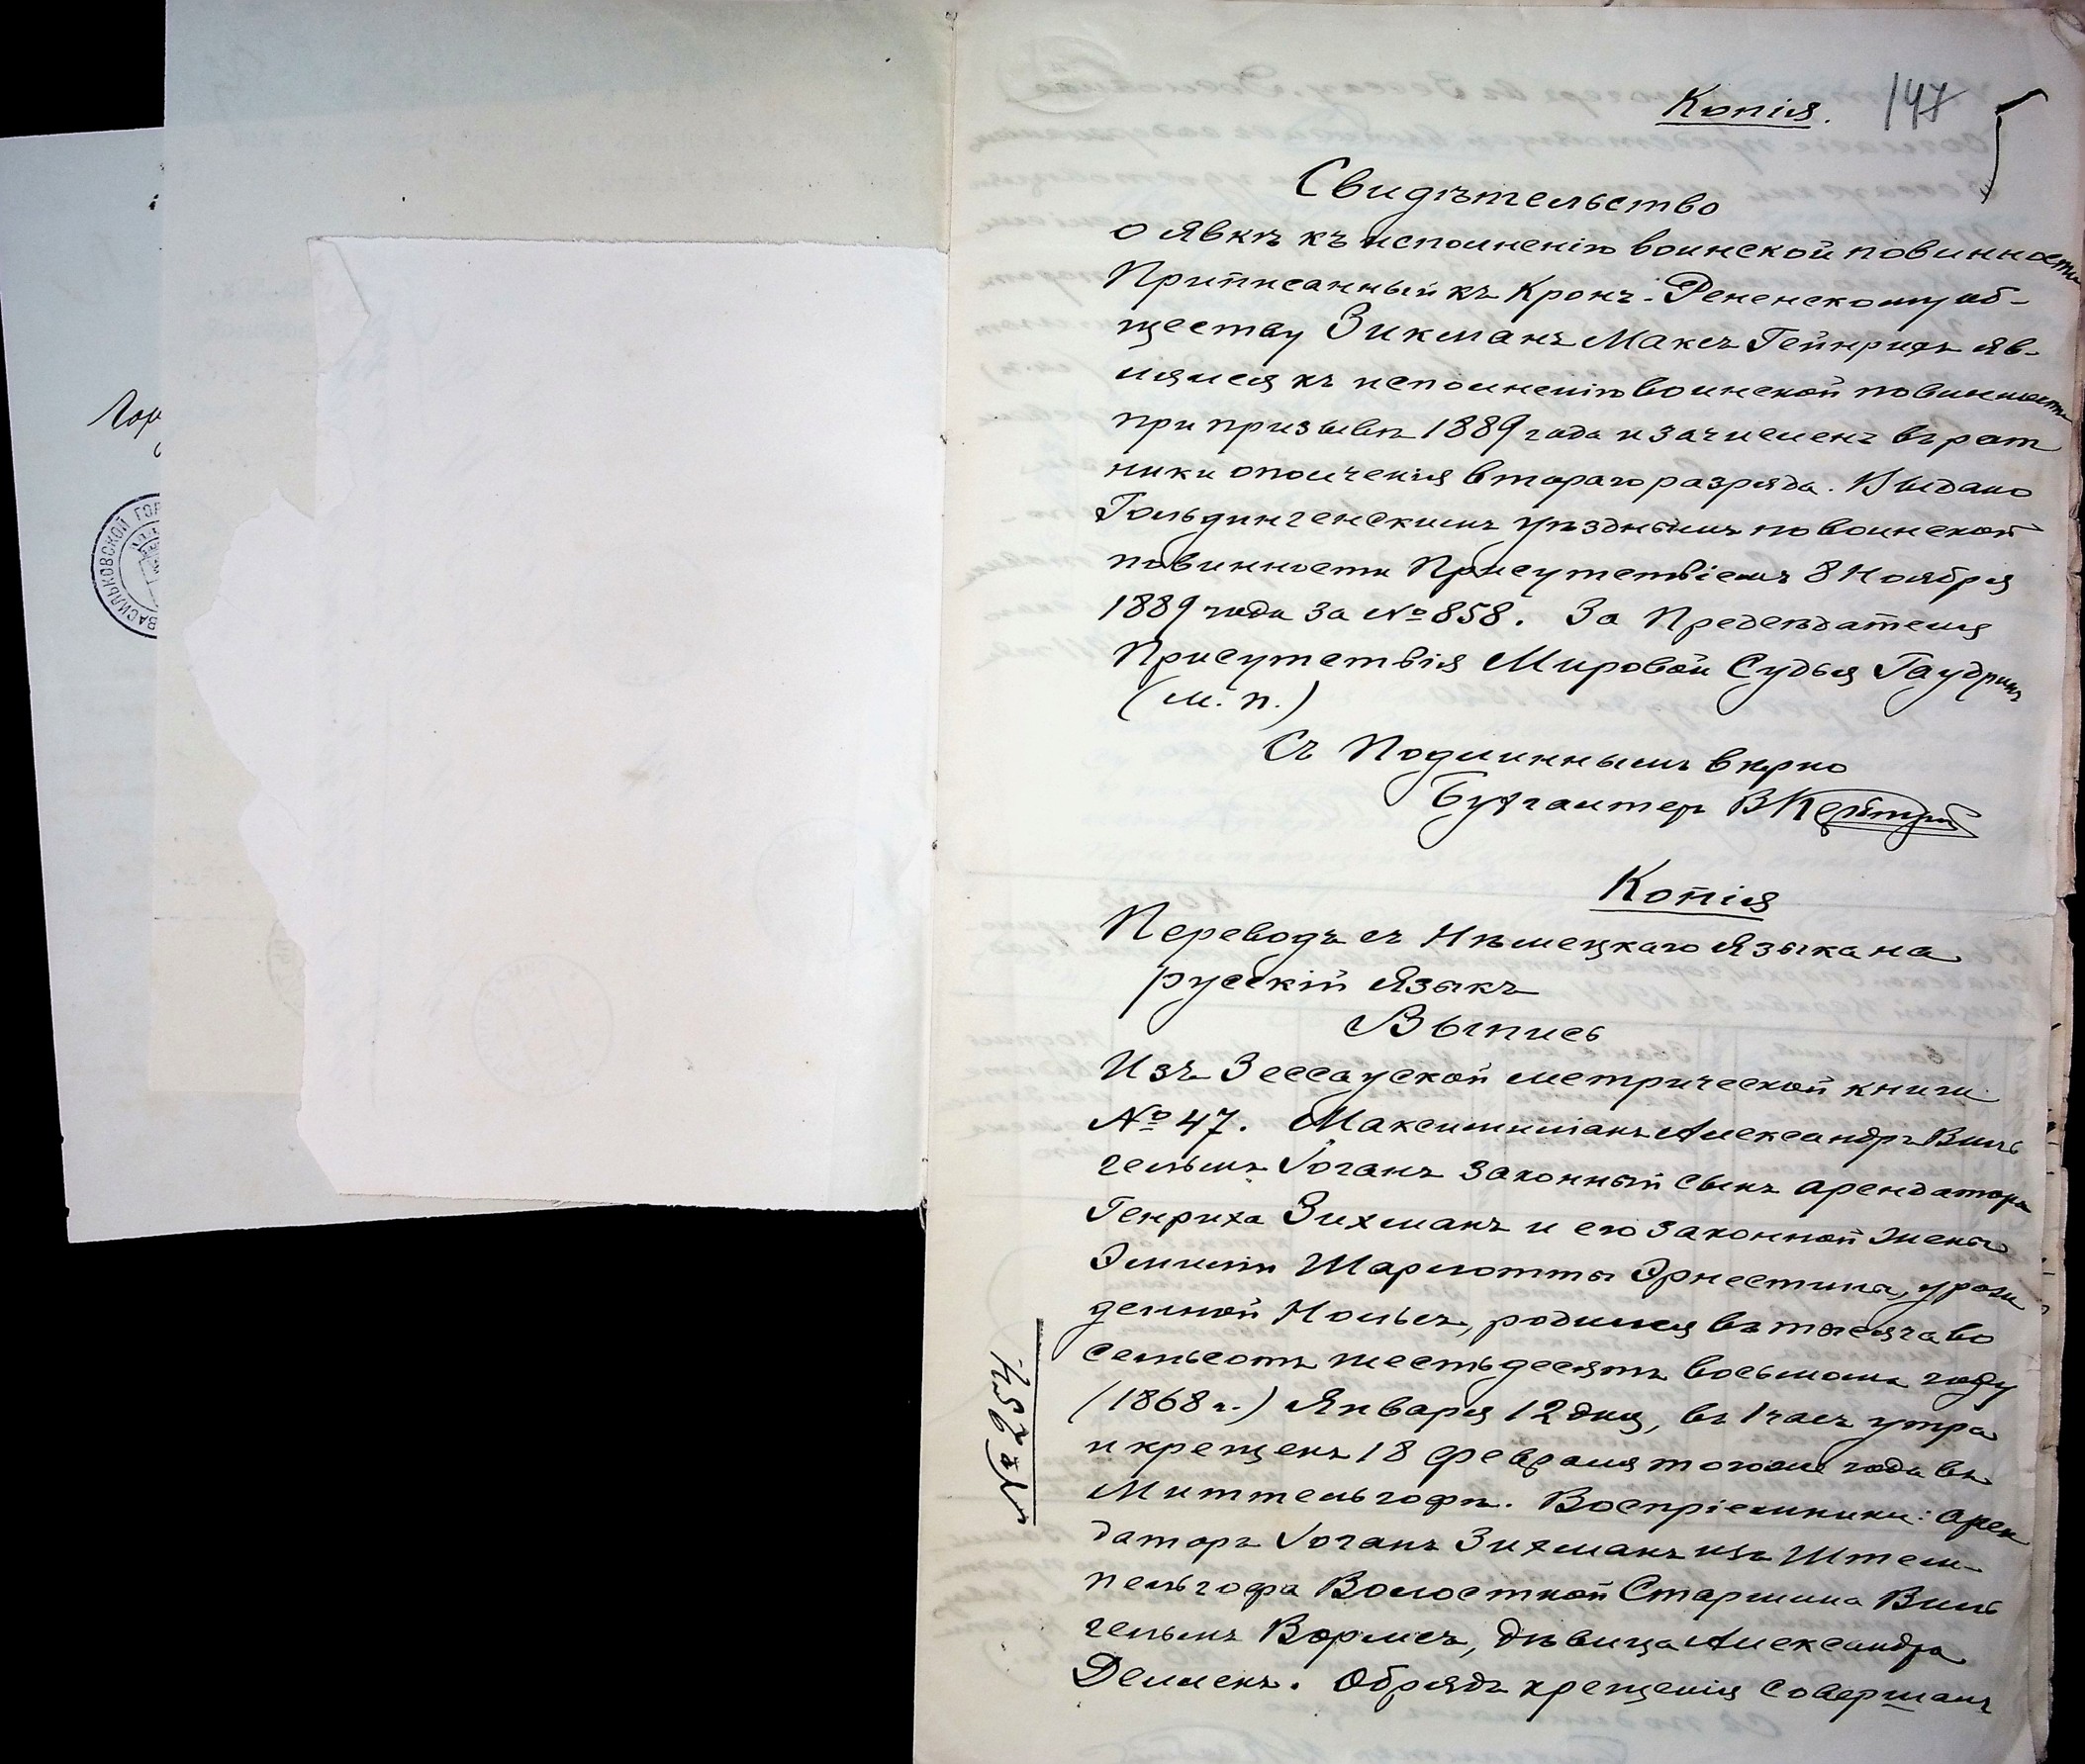 Гор
ВАСИЛЬКОВСКОЙ ГОР
Копія. 147
Свидѣтельство
о явкѣ къ исполненію воинской повинности
Приписанный къ Кронъ-Рененскому об-
ществу Зикманъ Максъ Гейнрихъ яв-
лялся къ исполненію воинской повинности
при призывѣ 1889 года и зачисленъ въ рат
ники ополченія втораго разряда. Выдано
Гольдингенскимъ уѣзднымъ по воинской
повинности Присутствіемъ 8 Ноября
1889 года за № 858. За Предсѣдателя
Присутствія Мировой Судья Гаудринъ
(М. П.)
Съ Подлиннымъ вѣрно
Бухгалтеръ В
Копія
Переводъ съ Нѣмецкаго языка на
русскій языкъ
Выпись
Изъ Зессауской метрической книги
№ 47. Максимиліанъ Александръ Виль
гельмъ Іоганъ законный сынъ арендатора
Генриха Зихманъ и его законной жены
Эмиліи Шарлотты Эрнестина, урож
денной Нольсъ, родился въ тысяча во
семьсотъ шестьдесятъ восьмомъ году
(1868 г.) Января 12 дня, въ 1 часъ утра
и крещенъ 18 Февраля того же года въ
Миттельгофѣ. Воспріемники: арен
даторъ Іоганъ Зихманъ изъ Штем-
пельгофа Волостной Старшина Виль
гельмъ Вормсъ, дѣвица Александра
Демменъ. Обрядъ крещенія совершалъ